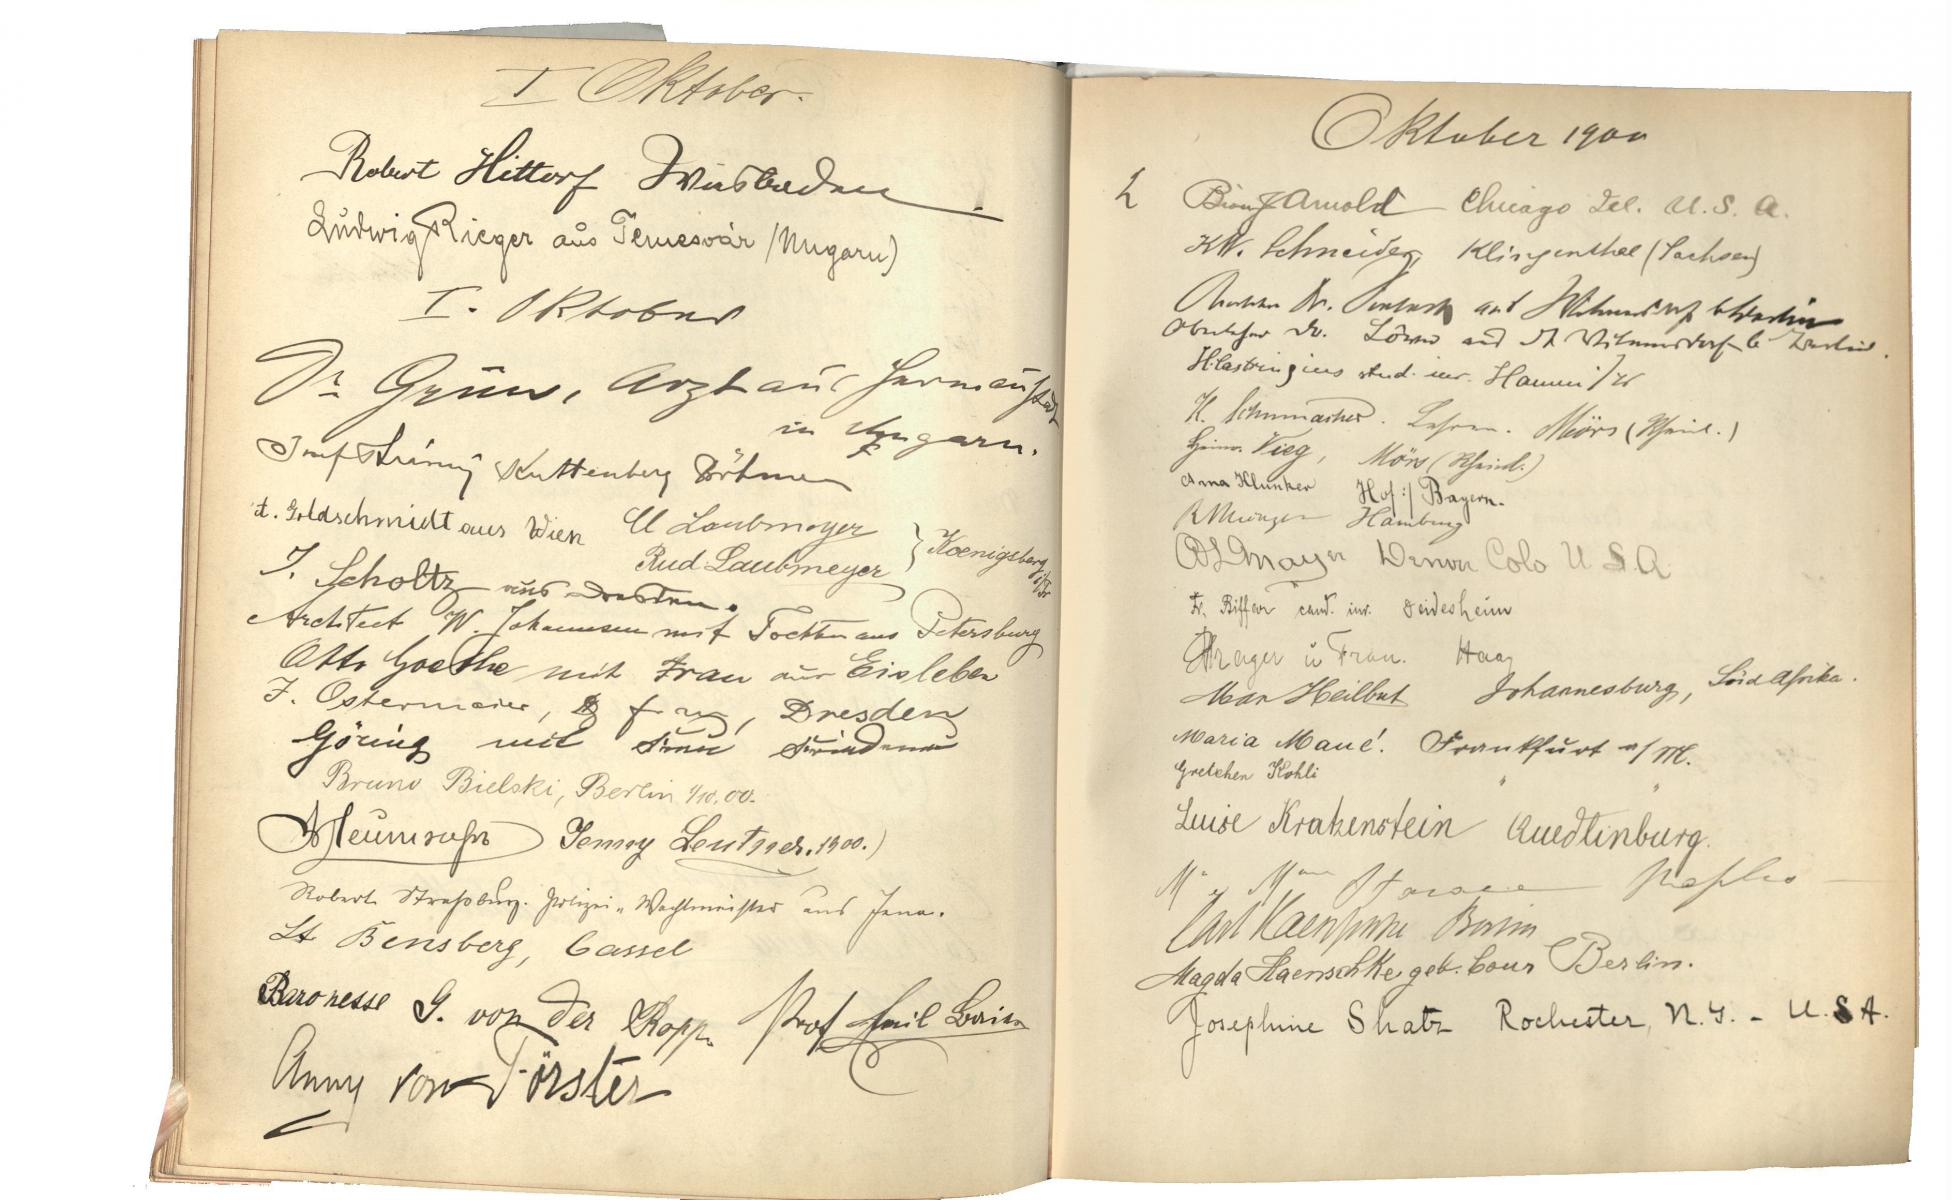 I Oktober.
Robert Hittorf Wiesbaden
Ludwig Rieger aus Temesvár (Ungarn)
I. Oktober
Dr Grün, Arzt aus Hermannstadt
in Ungarn.
Kuttenberg Böhmen
Goldschmidt aus Wien
Laubmeyer
Rud. Laubmeyer } Koenigsberg i/Pr
J. Scholtz aus Dresden.
Architect W. Johannsen mit Tochter aus Petersburg
Otto Goethe mit Frau aus Eisleben
J. Ostermaier, Dresden
Göring mit Frau Friedenau
Bruno Bielski, Berlin 1/10.00.
Jenny Leutner. 1900.)
Robert Straßburg. Polizei-Wachtmeister aus Jena.
Lt Bensberg, Cassel
Baronesse G. von der Ropp. Prof Emil
Anny von Förster
Oktober 1900
2 Arnold Chicago Ill. U.S.A.
KW. Schneider, Klingenthal (Sachsen)
Dr. aus Wilmersdorf b Berlin
Oberlehrer Dr. Löwe aus Dt Wilmersdorf b Berlin.
stud. iur. Hamm i/W
K. Schumacher. Mörs (Rheinl.)
Heinr. Vieg, Mörs (Rheinl.)
Klunker Hof i/ Bayern.
Hamburg
Mayer Denver Colo U.S.A.
Fr. Biffar cand. iur. Deidesheim
u Frau. Haag
Max Heilbut Johannesburg, Süd Afrika.
Maria Maué. Frankfurt a/M.
Gretchen Kohli " "
Luise Kratzenstein Quedlinburg.
Mr & Mme Naples
Carl Haenschke Berlin
Magda Haenschke geb. Cour Berlin.
Josephine Shatz Rochester, N.Y. - U.S.A.